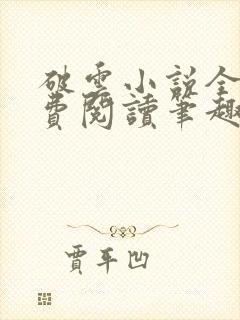 破雲小説全
費閱讀筆趣
賈平凹